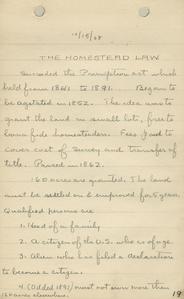 10/15/08
THE HOMESTEAD LAW
Succeeded the Preemption act which
held from 1841 to 1891. Began to
be agitated in 1852. The idea was to
grant the land in small lots, free to
bona fide homesteaders. Fees just to
cover cost of survey and transfer of
title. Passed in 1862.
160 acres are granted. The land
must be settled on & improved for 5 years.
Qualified persons are
1. Head of a family,
2. A citizen of the U.S. who is of age.
3. Alien who has filed a declaration
to become a citizen.
4. (Added 1891) must not own more than
160 acres elsewhere.
19